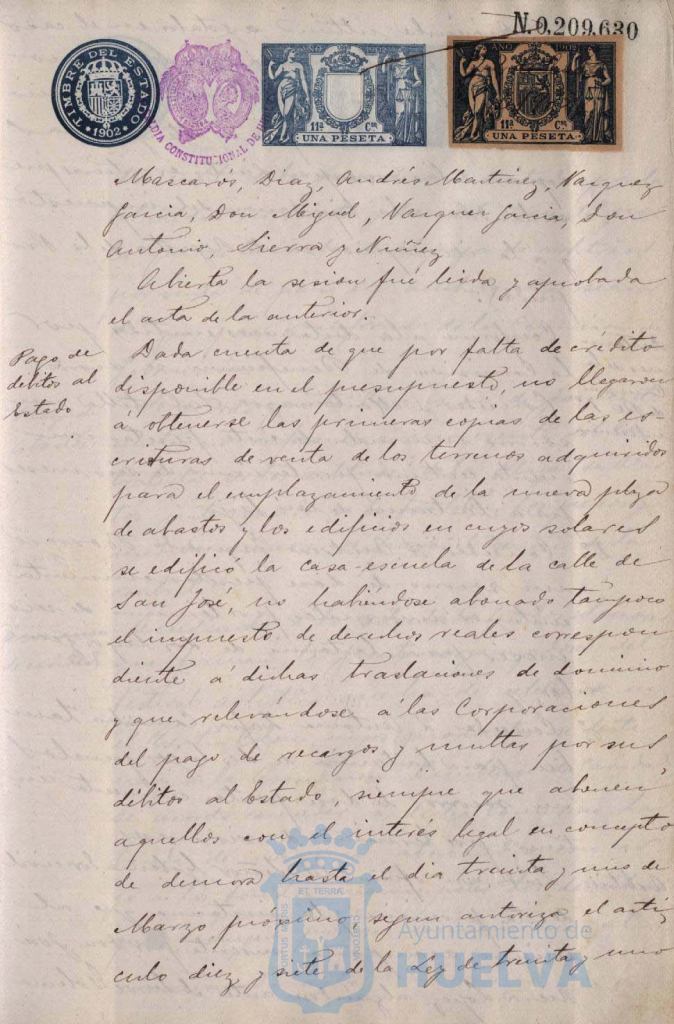 N.0,209,630
TIMBRE DEL ESTADO
1902
ALDIA CONSTITUCIONAL DE
AÑO 1902
11ª Cª
UNA PESETA
AÑO 1902
11ª Cª
UNA PESETA
Mascarós, Díaz, Andrés Martínez, Vazquez
García, Don Miguel, Vazquez García, Don
Antonio, Sierra y Nuñez
Abierta la sesion fué leida y aprobada
el acta de la anterior.
Pago de
debitos al
Estado
Dada cuenta de que por falta de crédito
disponible en el presupuesto, no llegaron
á obtenerse las primeras copias de las es-
crituras de venta de los terrenos adquiridos
para el emplazamiento de la nueva plaza
de abastos y los edificios en cuyos solares
se edificó la casa-escuela de la calle de
San José, no habiéndose abonado tampoco
el impuesto de derechos reales correspon
diente á dichas traslaciones de dominio
y que relevándose á las Corporaciones
del pago de recargos y multas por sus
débitos al Estado, siempre que abonen
aquellos con el interés legal en concepto
de demora hasta el dia treinta y uno de
Marzo próximo, segun autoriza el arti-
culo diez y siete de la Ley de treinta y uno
Ayuntamiento de
HUELVA
ET TERRÆ
PORTUS MARIS
CUSTODIA